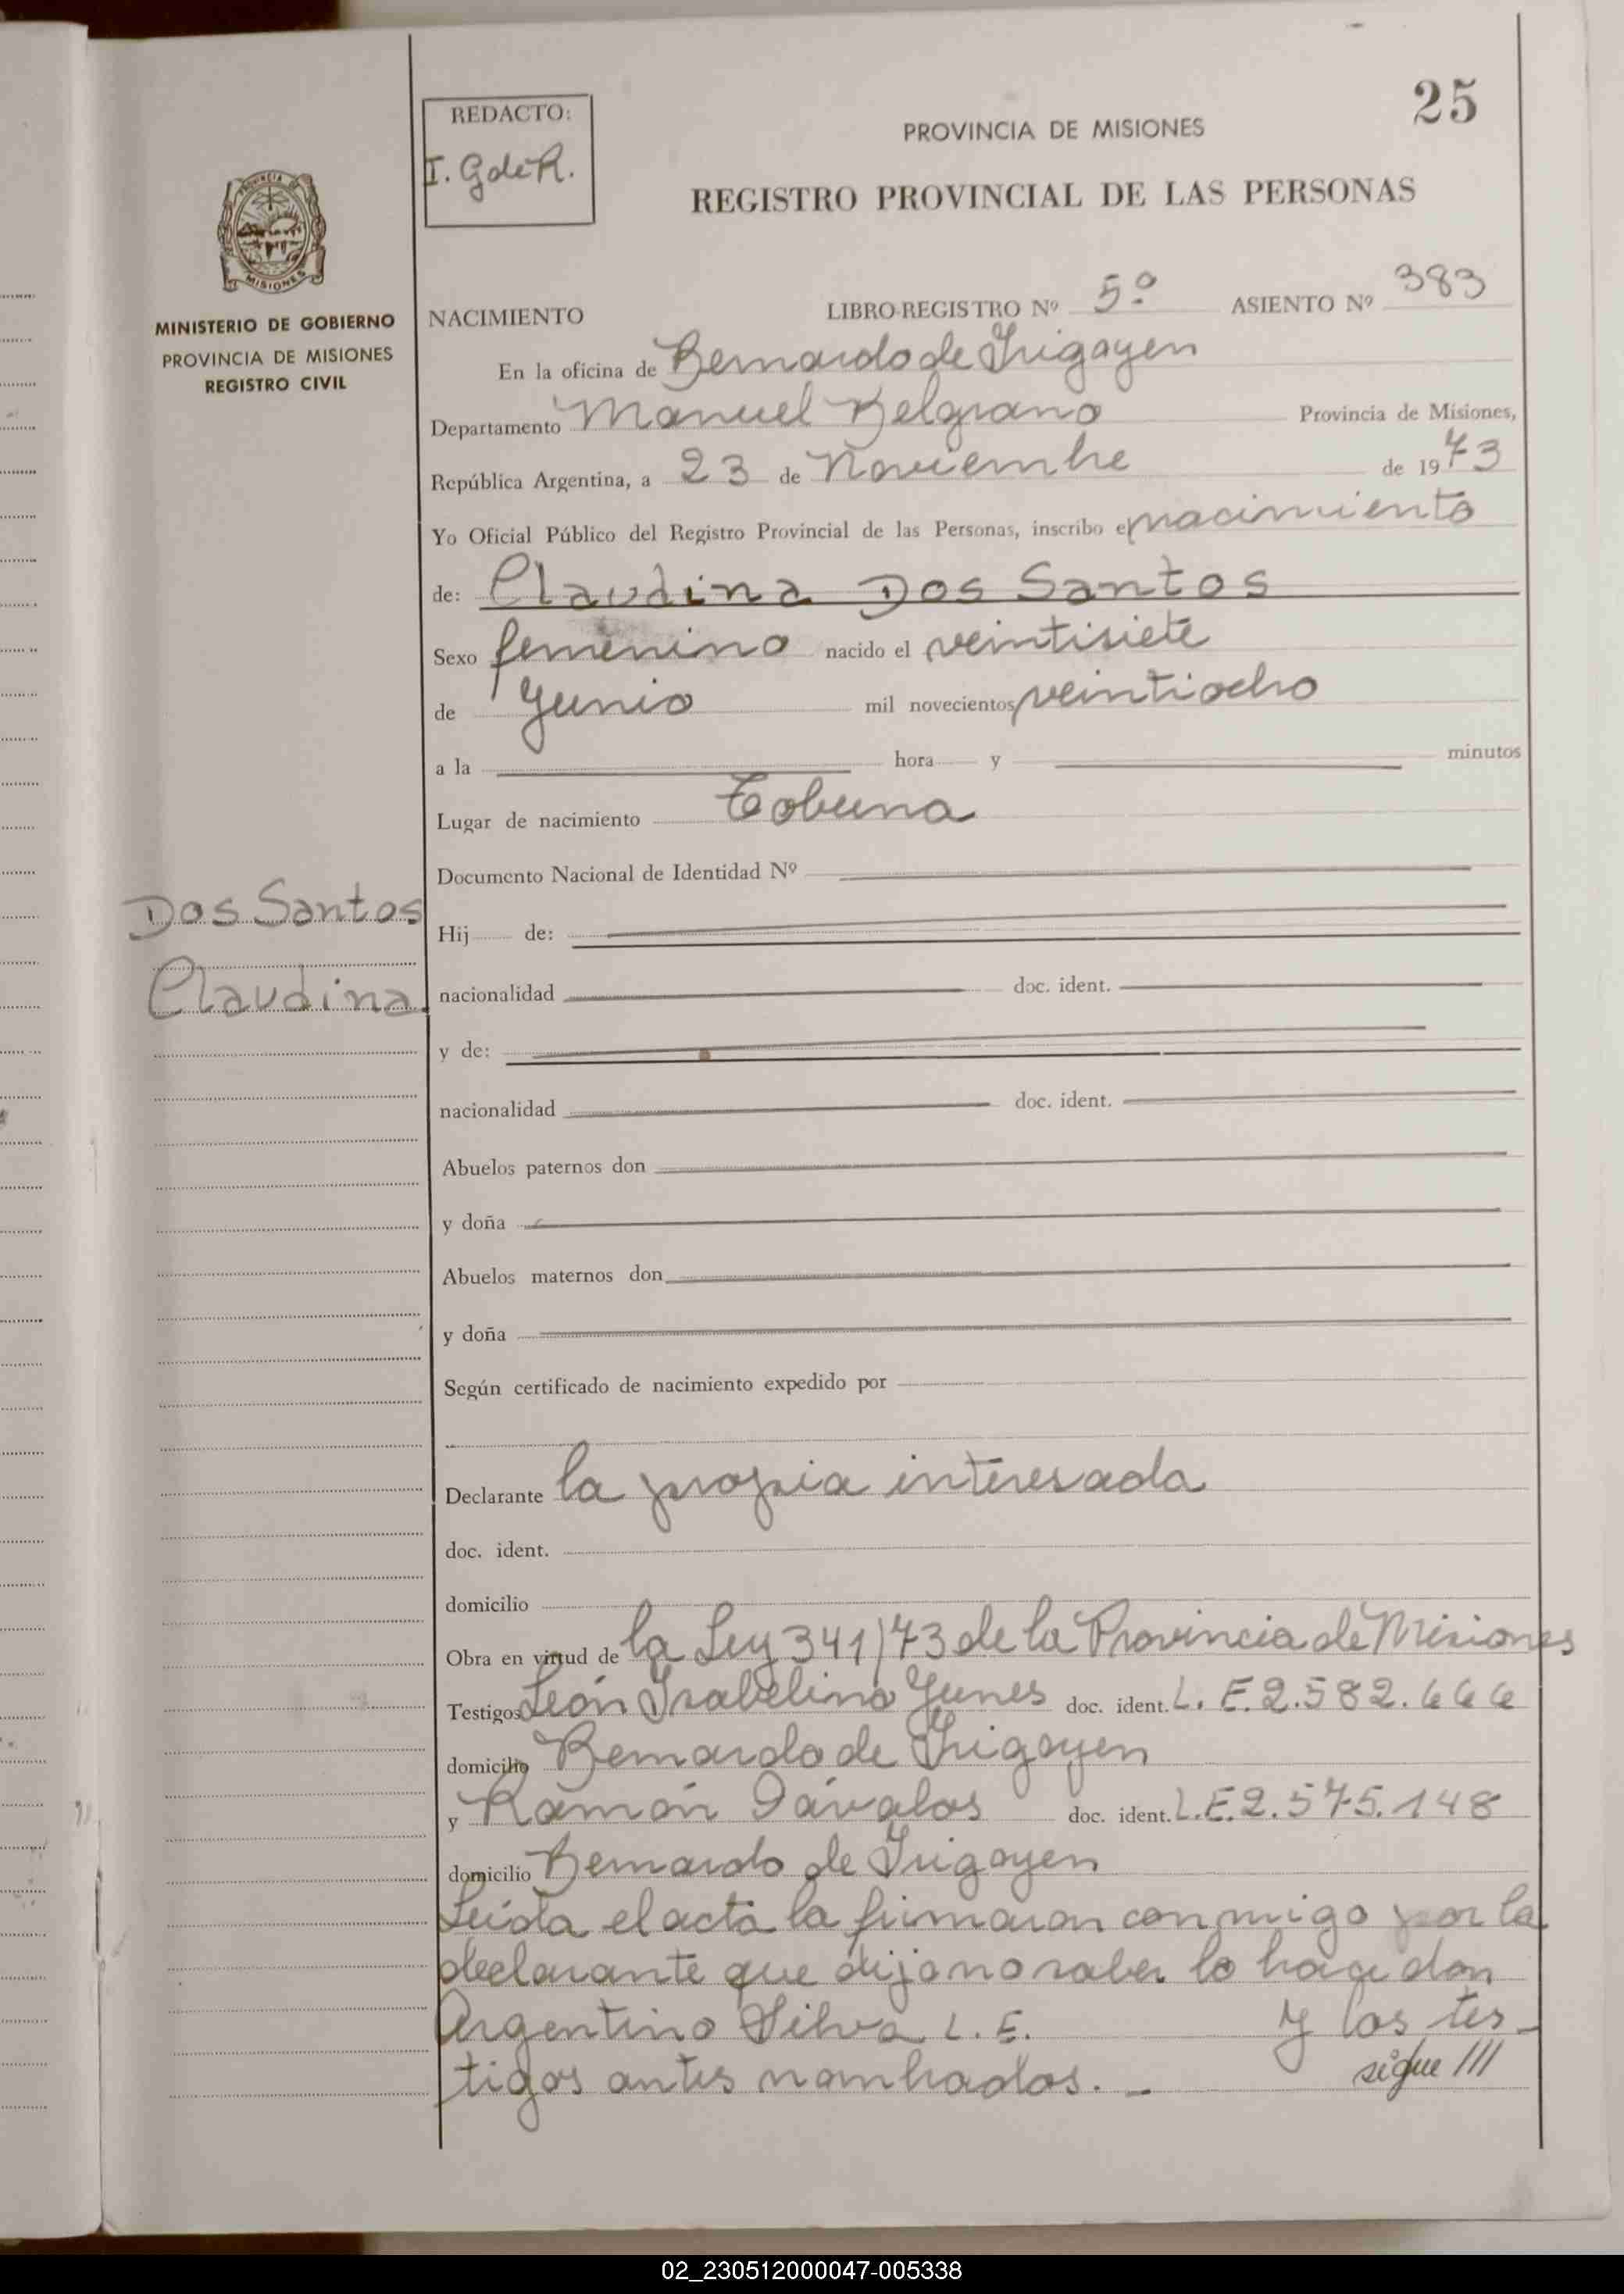 25
REDACTO:
I. GdeR.
PROVINCIA DE MISIONES
REGISTRO PROVINCIAL DE LAS PERSONAS
PROVINCIA DE
MISIONES
MINISTERIO DE GOBIERNO
PROVINCIA DE MISIONES
REGISTRO CIVIL
NACIMIENTO LIBRO-REGISTRO Nº 5º ASIENTO Nº 383
En la oficina de Bernardo de Irigoyen
Departamento Manuel Belgrano Provincia de Misiones,
República Argentina, a 23 de Noviembre de 1973
Yo Oficial Público del Registro Provincial de las Personas, inscribo el nacimiento
de: Claudina Dos Santos
Sexo femenino nacido el veintisiete
de Junio mil novecientos veintiocho
a la hora y minutos
Lugar de nacimiento Tobuna
Documento Nacional de Identidad Nº
Dos Santos
Claudina
Hij de:
nacionalidad doc. ident.
y de:
nacionalidad doc. ident.
Abuelos paternos don
y doña
Abuelos maternos don
y doña
Según certificado de nacimiento expedido por
Declarante la propia interesada
doc. ident.
domicilio
Obra en virtud de la Ley 341/73 de la Provincia de Misiones
Testigos León Isabelino Yunes doc. ident. L. E. 2.582.666
domicilio Bernardo de Irigoyen
y Ramón Dávalos doc. ident. L.E.2.575.148
domicilio Bernardo de Irigoyen
Leída el acta la firmaron conmigo por la
declarante que dijo no saber lo hace don
Argentino Silva L. E. y los tes-
tigos antes nombrados. -
sigue ///
02_230512000047-005338